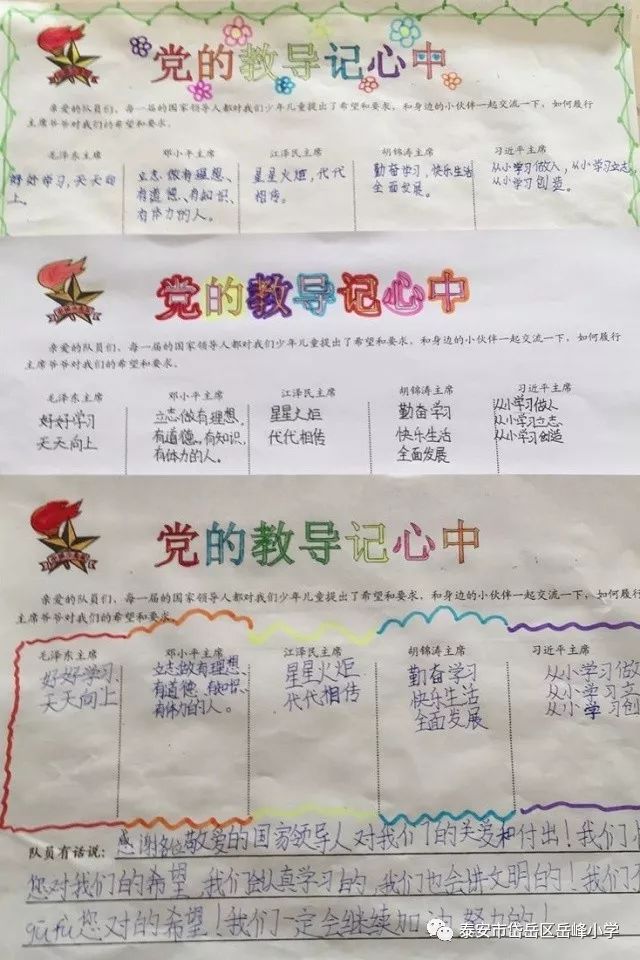 党的教导记心中
亲爱的队员们，每一届的国家领导人都对我们少年儿童提出了希望和要求，和身边的小伙伴一起交流一下，如何履行
主席爷爷对我们的希望和要求。
毛泽东主席 邓小平主席 江泽民主席 胡锦涛主席 习近平主席
好好学习，天天向
上。
立志，做有理想、
有道德、有知识、
有体力的人。
星星火炬，代代
相传。
勤奋学习，快乐生活
全面发展。
从小学习做人，从小学习立志，
从小学习创造。
党的教导记心中
亲爱的队员们，每一届的国家领导人都对我们少年儿童提出了希望和要求，和身边的小伙伴一起交流一下，如何履行
主席爷爷对我们的希望和要求。
毛泽东主席 邓小平主席 江泽民主席 胡锦涛主席 习近平主席
好好学习
天天向上
立志做有理想，
有道德，有知识，
有体力的人。
星星火炬
代代相传
勤奋学习
快乐生活
全面发展
从小学习做人
从小学习立志
从小学习创造
党的教导记心中
亲爱的队员们，每一届的国家领导人都对我们少年儿童提出了希望和要求，和身边的小伙伴一起交流一下，如何
主席爷爷对我们的希望和要求。
毛泽东主席 邓小平主席 江泽民主席 胡锦涛主席 习近平主席
好好学习
天天向上
立志做有理想
有道德、有知识、
有体力的人。
星星火炬
代代相传
勤奋学习
快乐生活
全面发展
从小学习做
从小学习立
从小学习创
队员有话说：感谢各位敬爱的国家领导人对我们的关爱和付出！我们
您对我们的希望，我们会认真学习的，我们也会讲文明的！我们不
gū fù您对的希望！我们一定会继续加油、努力的！
泰安市岱岳区岳峰小学